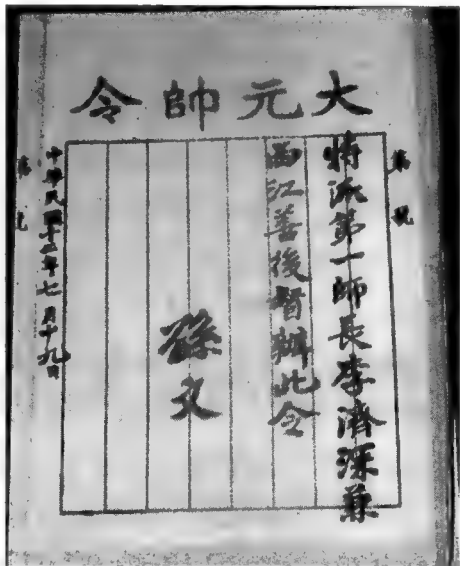 大元帥令
第 號
特派第一師長李濟深兼
西江善後督辦此令
孫文
中華民國十二年七月十九日